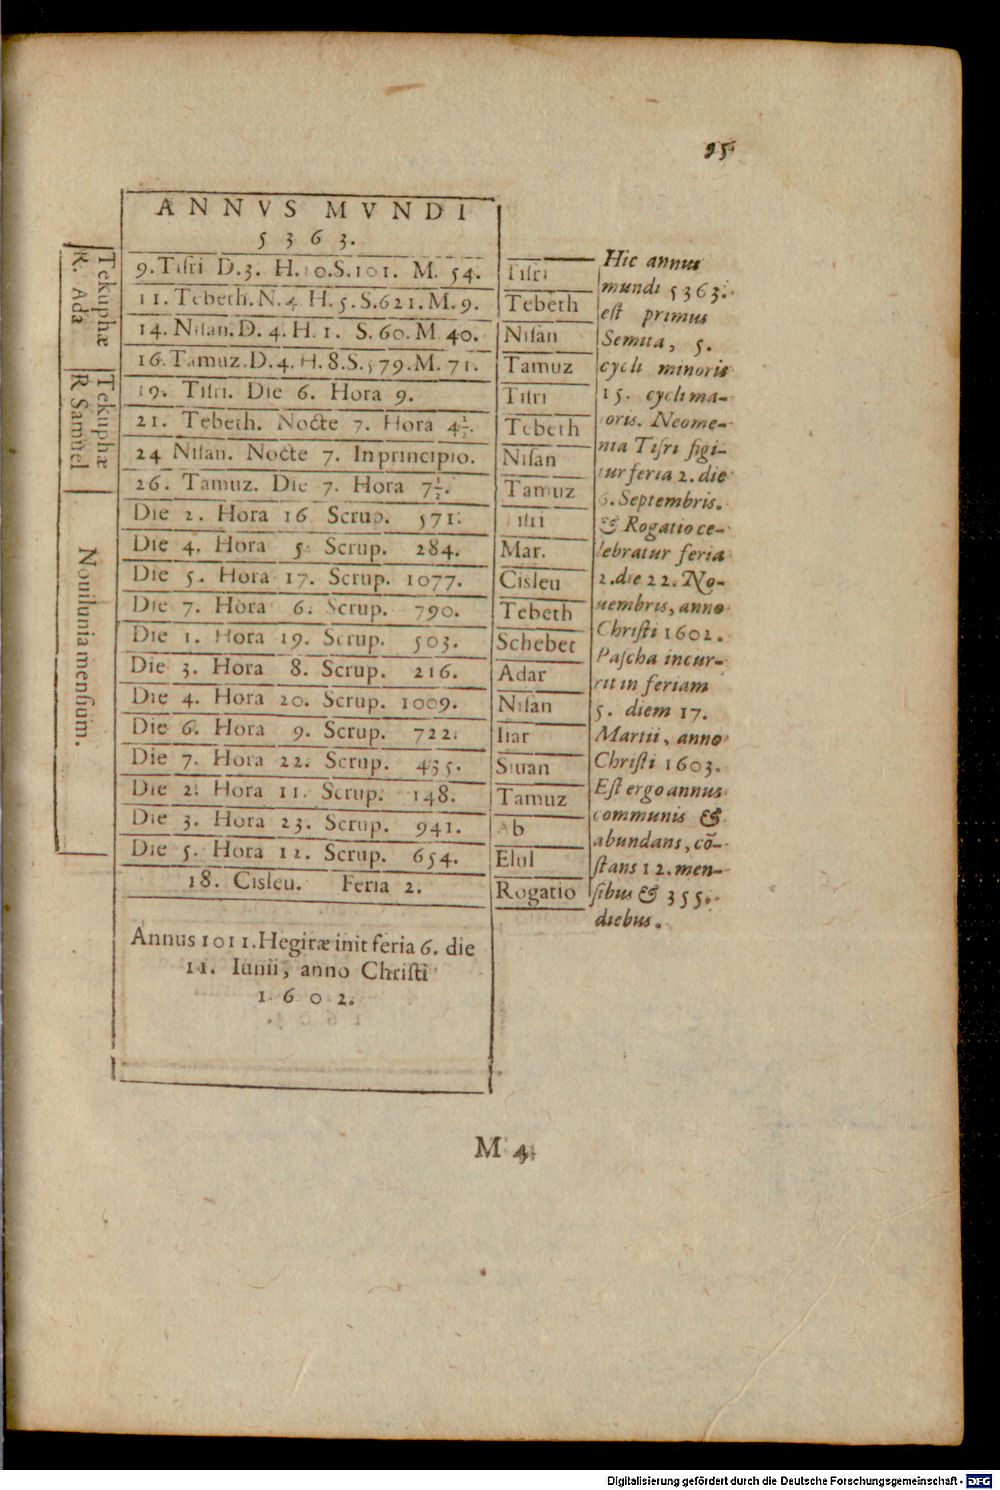 95
ANNVS MVNDI
5363.
Tekuphæ
R. Ada
9. Tiſri D.3. H.10.S.101. M. 54. Tiſri
11. Tebeth. N.4 H. 5. S.621. M. 9. Tebeth
14. Niſan. D. 4. H. 1. S. 60. M 40. Niſan
16. Tamuz. D. 4. H. 8. S. 579. M. 71. Tamuz
Tekuphæ
R Samuel
19. Tiſri. Die 6. Hora 9. Tiſri
21. Tebeth. Nocte 7. Hora 4½. Tebeth
24 Niſan. Nocte 7. In principio. Niſan
26. Tamuz. Die 7. Hora 7½. Tamuz
Nouilunia menſium.
Die 2. Hora 16 Scrup. 571. Tiſri
Die 4. Hora 5. Scrup. 284. Mar.
Die 5. Hora 17. Scrup. 1077. Cisleu
Die 7. Hora 6. Scrup. 790. Tebeth
Die 1. Hora 19. Scrup. 503. Schebet
Die 3. Hora 8. Scrup. 216. Adar
Die 4. Hora 20. Scrup. 1009. Niſan
Die 6. Hora 9. Scrup. 722. Iiar
Die 7. Hora 22. Scrup. 435. Siuan
Die 2. Hora 11. Scrup. 148. Tamuz
Die 3. Hora 23. Scrup. 941. Ab
Die 5. Hora 12. Scrup. 654. Elul
18. Cisleu. Feria 2. Rogatio
Annus 1011. Hegiræ init feria 6. die
11. Iunii, anno Chriſti
1602.
Hic annus
mundi 5363.
eſt primus
Semita, 5.
cycli minoris
15. cycli ma-
ioris. Neome-
nia Tiſri figi-
tur feria 2. die
6. Septembris.
& Rogatio ce-
lebratur feria
2. die 22. No-
uembris, anno
Chriſti 1602.
Paſcha incur-
rit in feriam
5. diem 17.
Martii, anno
Chriſti 1603.
Eſt ergo annus
communis &
abundans, cō-
ſtans 12. men-
ſibus & 355.
diebus.
M 4
Digitalisierung gefördert durch die Deutsche Forschungsgemeinschaft - DFG